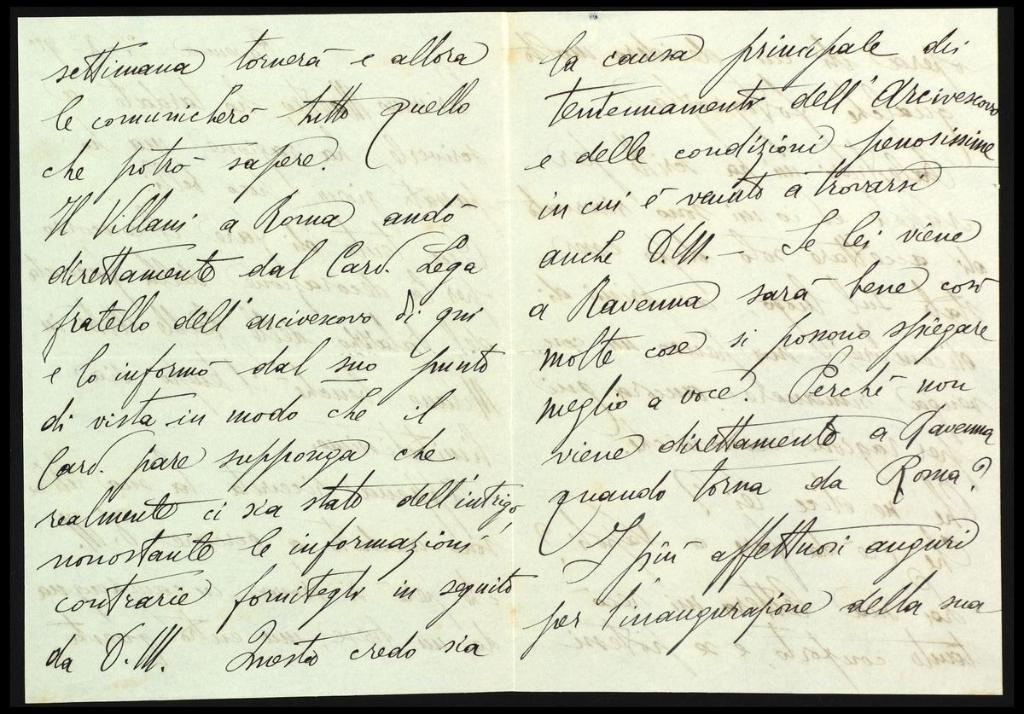 settimana tornerà e allora
le comunicherò tutto quello
che potrò sapere.
Il Villani a Roma andò
direttamente dal Card. Lega
fratello dell'arcivescovo di qui
e lo informò dal suo punto
di vista in modo che il
Card. pare supponga che
realmente ci sia stato dell'intrigo,
nonostante le informazioni
contrarie fornitegli in seguito
da D. M. Questo credo sia
la causa principale dei
tentennamenti dell'Arcivescovo
e delle condizioni penosissime
in cui è venuto a trovarsi
anche D. M. – Se lei viene
a Ravenna sarà bene così
molte cose si possono spiegare
meglio a voce. Perché non
viene direttamente a Ravenna
quando torna da Roma?
I più affettuosi auguri
per l'inaugurazione della sua